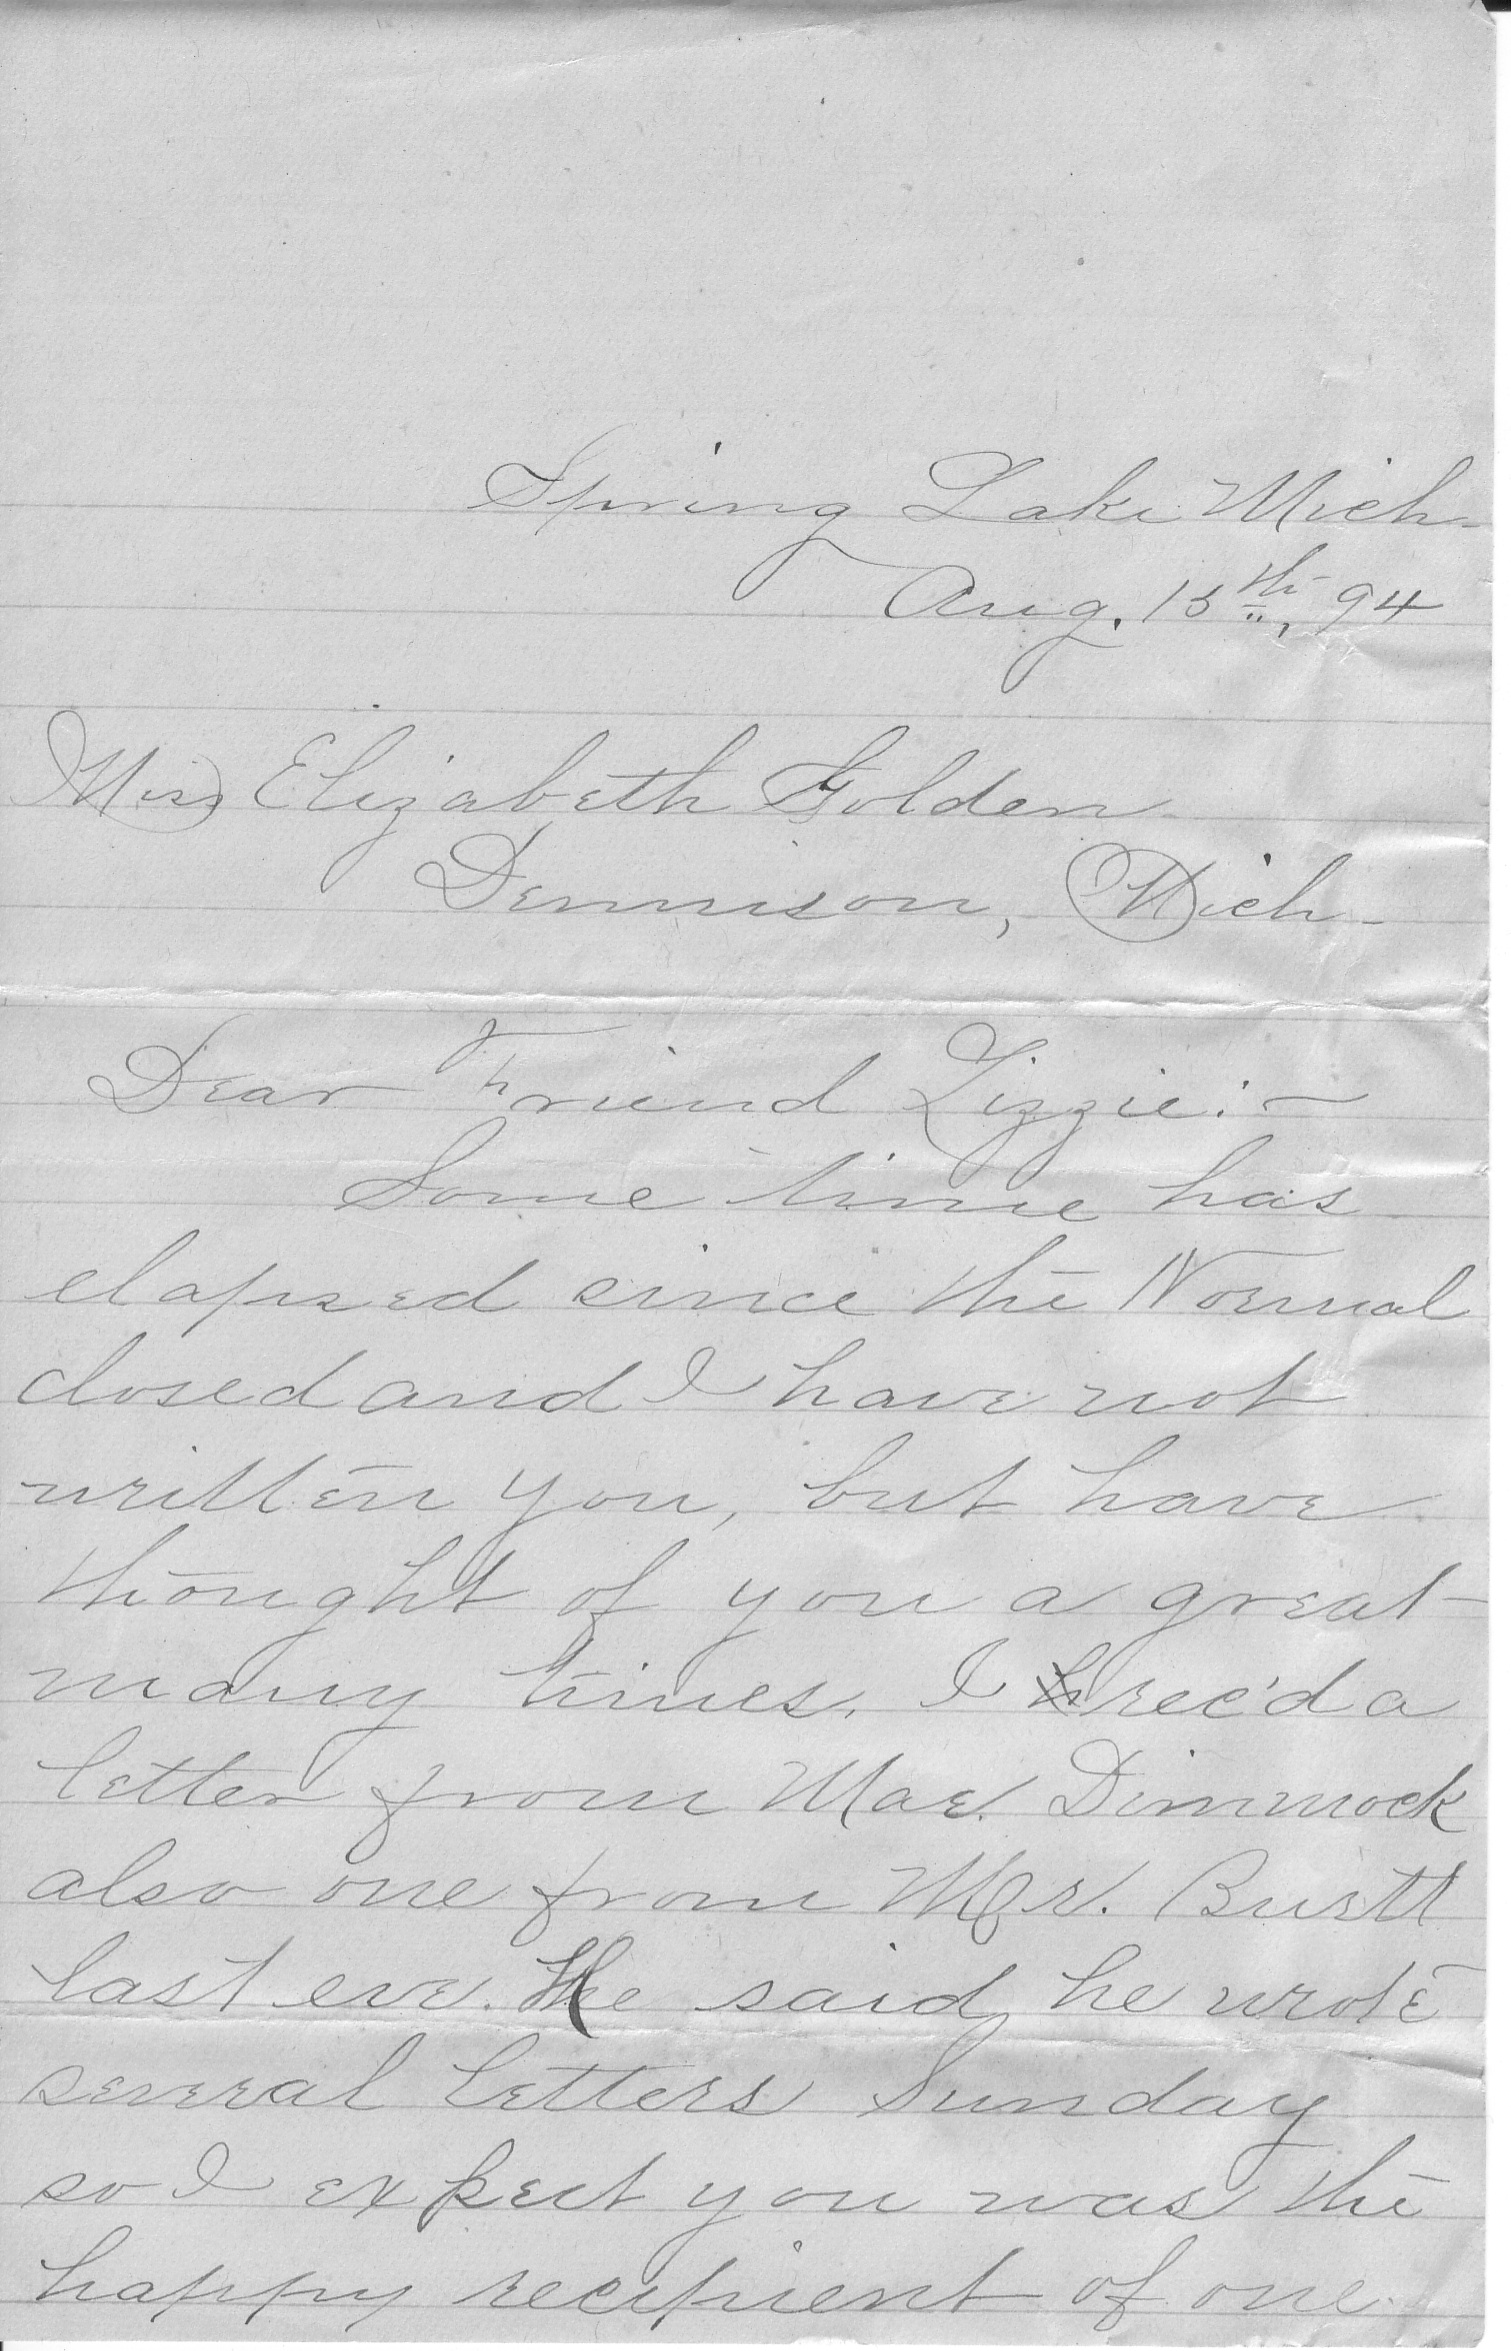 Spring Lake Mich-
Aug. 15th, 94
Miss Elizabeth Golden
Dennison, Mich-
Dear Friend Lizzie:-
Some time has
elapsed since the Normal
closed and I have not
written you, but have
thought of you a great
many times. I rec'd a
letter from Mae. Dimmock
also one from Mr. Burtt
last eve. He said he wrote
several letters Sunday
so I expect you was the
happy recipient of one.